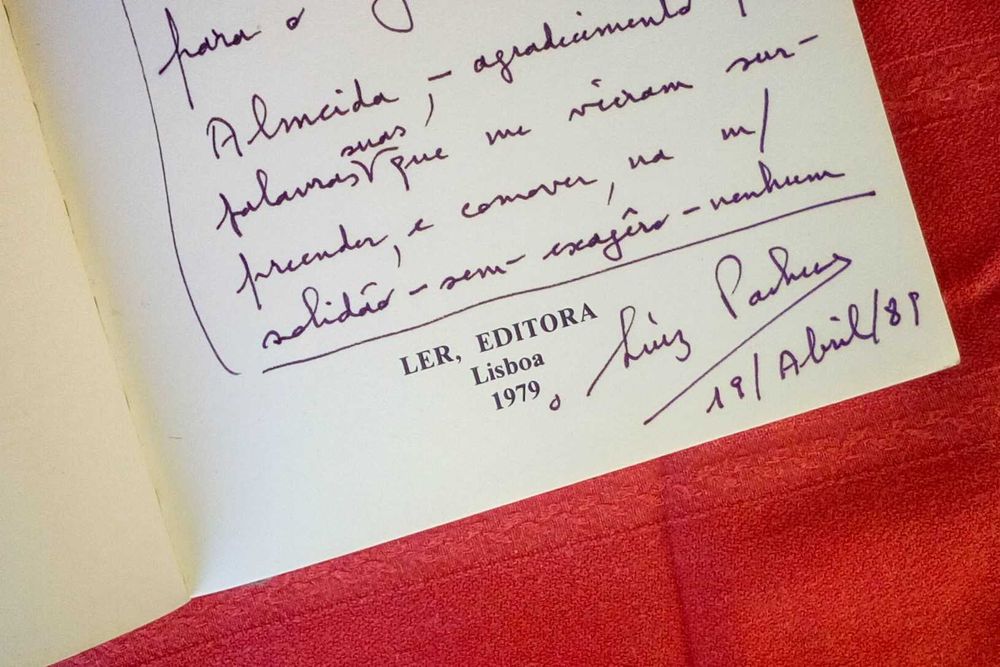 para o
Almeida, – agradecimento
suas
palavras que me vieram sur-
preender, e comover, na m/
solidão – sem – exagêro – nenhum
LER, EDITORA
Lisboa
1979
o Luiz Pacheco
19/Abril/89